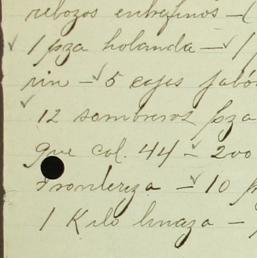 rebozos entrefinos — (
1 pza holanda — 1
rin — 5 cajas jabó
12 sombreros pza
que col. 44 — 200
Fronteriza — 10
1 Kilo linaza —